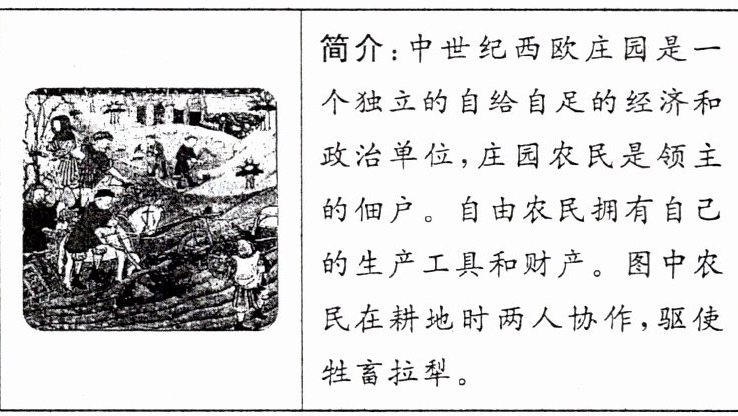 简介:中世纪西欧庄园是一
个独立的自给自足的经济和
政治单位,庄园农民是领主
的佃户。自由农民拥有自己
的生产工具和财产。图中农
民在耕地时两人协作,驱使
牲畜拉犁。